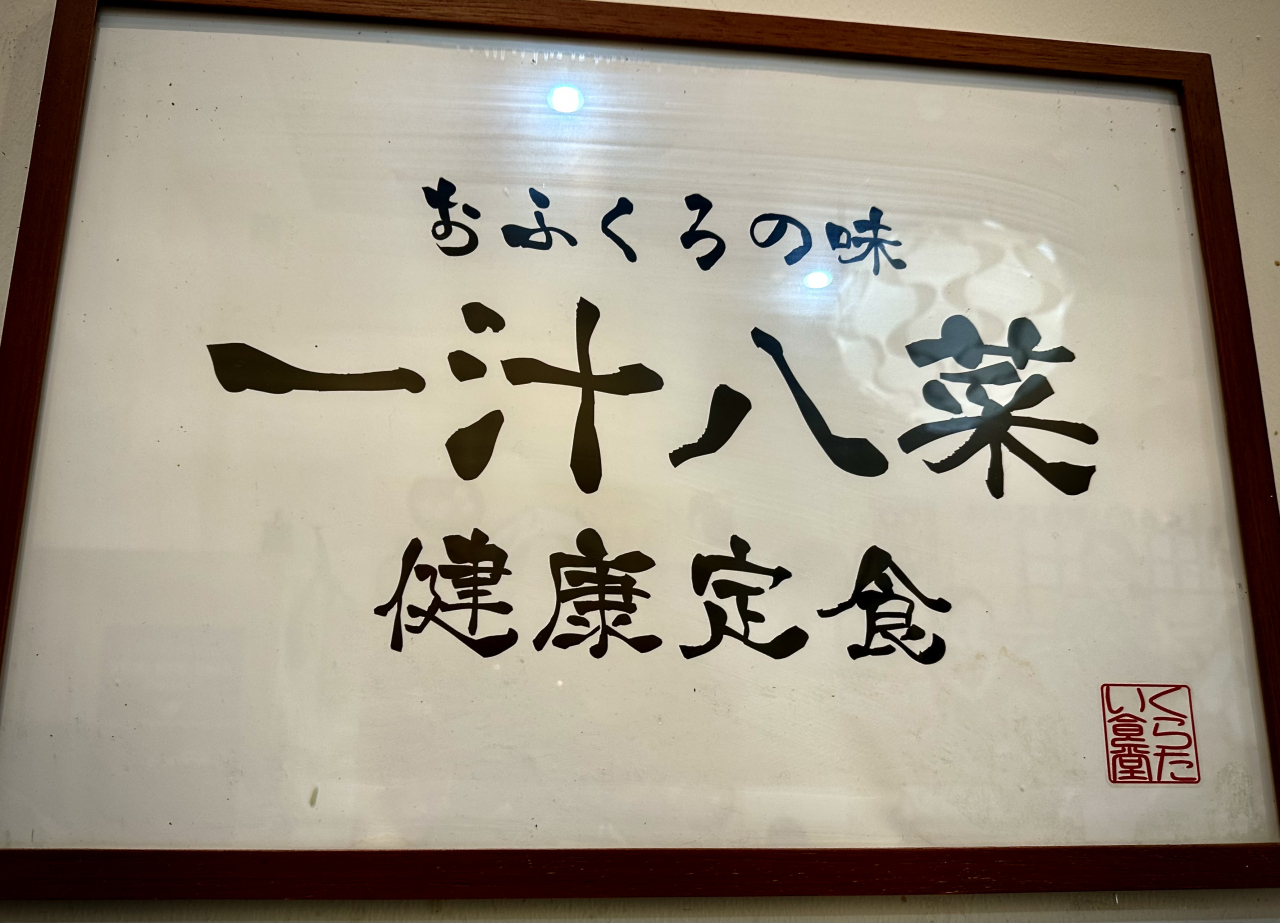 おふくろの味
一汁八菜
健康定食
くらた
い食堂